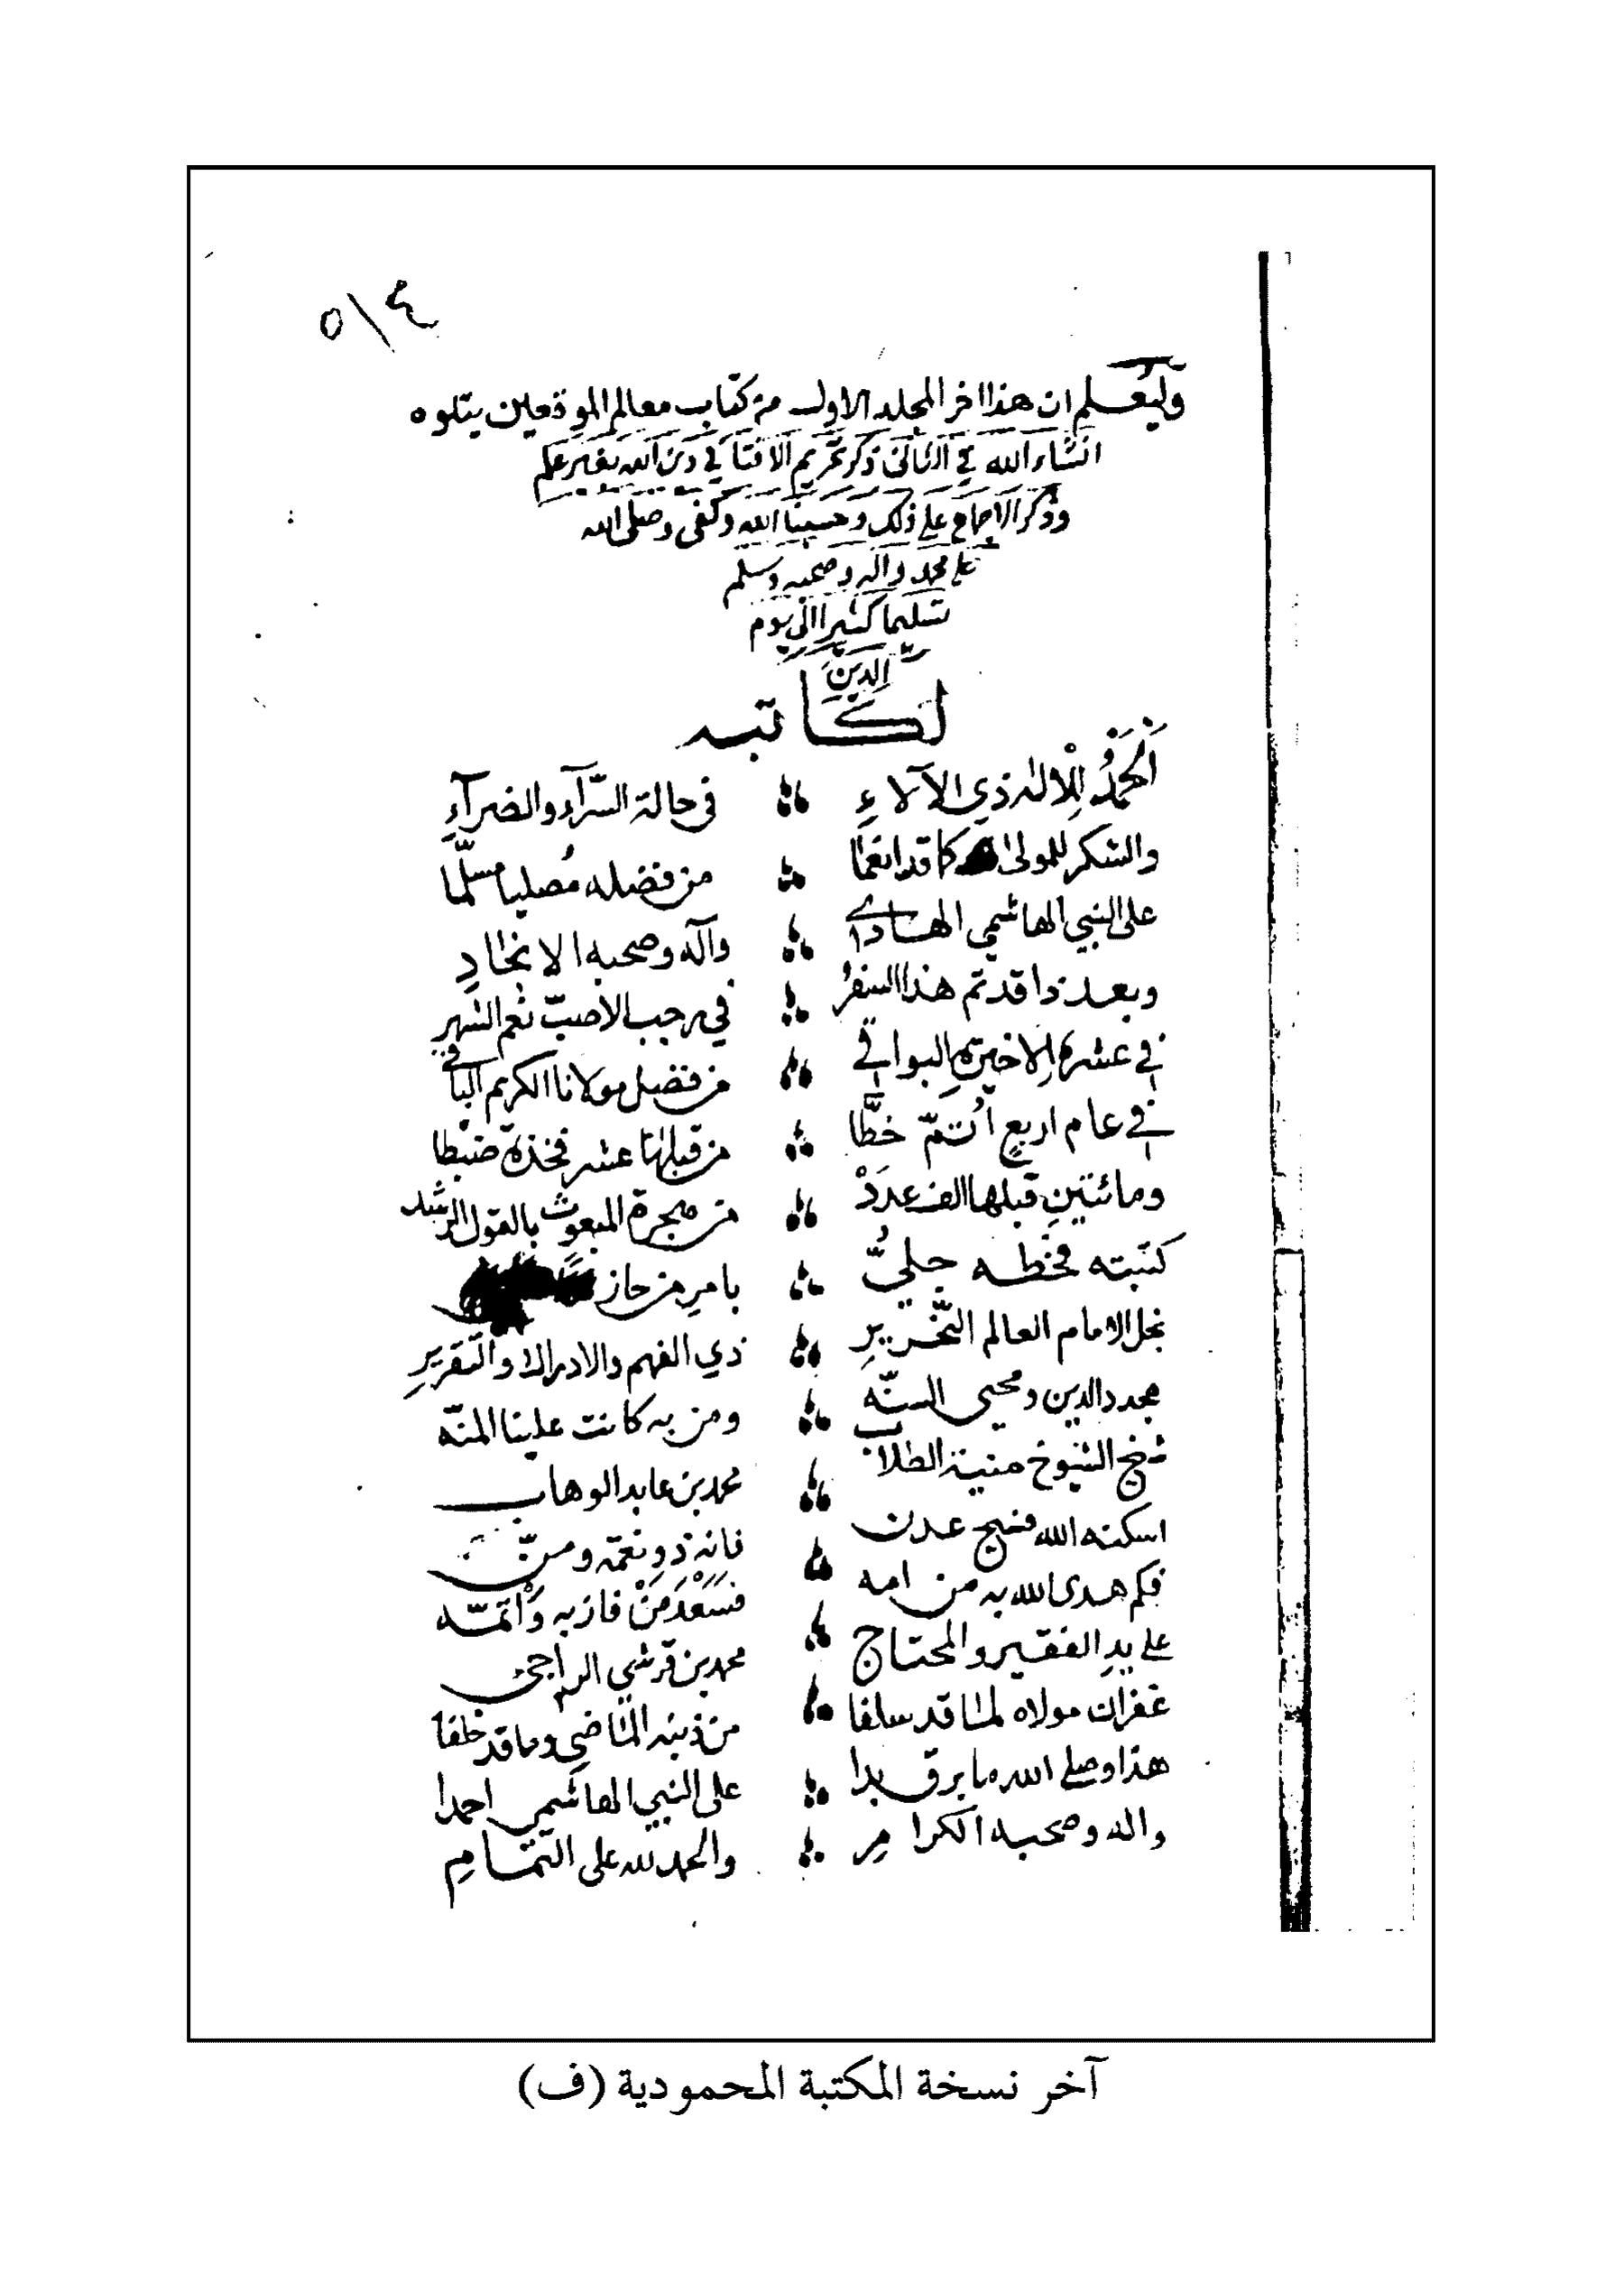 ٥١٤
وليعلم ان هذا اخر المجلد الاول من كتاب معالم الموقعين يتلوه
انشاء الله في الثاني ذكر تحريم الافتا في دين الله بغير علم
وذكر الاجماع على ذلك وحسبنا الله وكفى وصلى الله
على محمد واله وصحبه وسلم
تسليما كثيرا الى يوم
الدين
لكاتبه
اَلحَمْدُ لِلْإلٰه ذي الآلاءِ في حالة السّرآء والضرآءِ
والشكر للمولى كما قد انعما من فضله مُصليا مسلّما
على النبي الهاشمي الهادي وآله وصحبه الانجادِ
وبعد ذا قد تم هذا السِفرُ في رجب الاصبّ نعم الشهر
في عشره الاخيرة البواقي من فضل مولانا الكريم الباقي
في عام اربعٍ اُتمّ خطَّا من قبلها عشر فخذه ضبطا
ومائتينِ قبلها الف عدَدْ من هجرة المبعوث بالقول الرشد
كتبته فخطه جليُّ بامرِ من حاز
نجل الامام العالم النّحريرِ ذي الفهم والادراك والتقريرِ
مجدد الدين ومحيي السنّه ومن به كانت علينا المنّه
شيخ الشيوخ منية الطلاب محمد بن عابد الوهاب
اسكنه الله فسيح عدن فانه ذو نعمة ومنّ
فكم هدى الله به من امه فسَعْدَ مَنْ فاز به وَأتمّه
على يدِ الفقير والمحتاج محمد بن قرشي الراجي
غفران مولاه لما قد سلفا من ذنبه الماضي وما قد خلفا
هذا وصلى الله ما برق بدا على النبي الهاشمي احمدا
واله وصحبه الكرامِ والحمد لله على التمامِ
آخر نسخة المكتبة المحمودية (ف)